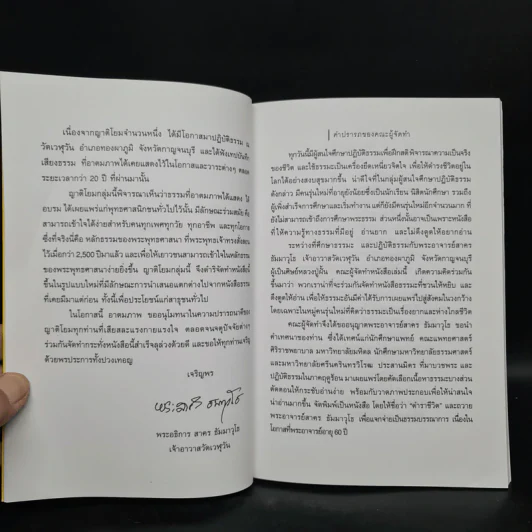 เนื่องจากญาติโยมจำนวนหนึ่ง ได้มีโอกาสมาปฏิบัติธรรม ณ
วัดเวฬุวัน อำเภอทองผาภูมิ จังหวัดกาญจนบุรี และได้ฟังเทปบันทึก
เสียงธรรม ที่อาตมภาพได้เคยแสดงไว้ในโอกาสและวาระต่างๆ ตลอด
ระยะเวลากว่า 20 ปี ที่ผ่านมานั้น
ญาติโยมกลุ่มนี้พิจารณาเห็นว่าธรรมที่อาตมภาพได้แสดง ได้
อบรม ได้เผยแพร่แก่พุทธศาสนิกชนทั่วไปไว้นั้น มีลักษณะร่วมสมัย คือ
สามารถเข้าใจได้ง่ายสำหรับคนทุกเพศทุกวัย ทุกอาชีพ และทุกโอกาส
ซึ่งที่จริงนี่คือ หลักธรรมของพระพุทธศาสนา ที่พระพุทธเจ้าทรงสั่งสอน
ไว้กว่า 2,500 ปีมาแล้ว และเพื่อให้เยาวชนสามารถเข้าใจในหลักธรรม
ของพระพุทธศาสนาง่ายยิ่งขึ้น ญาติโยมกลุ่มนี้ จึงดำริจัดทำหนังสือนี้
ขึ้นในรูปแบบใหม่ที่มีลักษณะการนำเสนอแตกต่างไปจากหนังสือธรรมะ
ที่เคยมีมาแต่ก่อน ทั้งนี้เพื่อประโยชน์แก่สาธุชนทั่วไป
ในโอกาสนี้ อาตมภาพ ขออนุโมทนาในความปรารถนาดีของ
ญาติโยมทุกท่านที่เสียสละแรงกายแรงใจ ตลอดจนจตุปัจจัยต่างๆ
ร่วมกันจัดทำกระทั่งหนังสือนี้สำเร็จลุล่วงด้วยดี และขอให้ทุกท่านเจริญ
ด้วยพรประการทั้งปวงเทอญ
เจริญพร
พระอธิการ สาคร ธัมมาวุโธ
เจ้าอาวาสวัดเวฬุวัน
คำปรารภของคณะผู้จัดทำ
ทุกวันนี้มีผู้สนใจศึกษาปฏิบัติธรรมเพื่อฝึกสติพิจารณาความเป็นจริง
ของชีวิต และใช้ธรรมะเป็นเครื่องยึดเหนี่ยวจิตใจ เพื่อให้ดำรงชีวิตอยู่ใน
โลกได้อย่างสงบสุขมากขึ้น น่าดีใจที่ในกลุ่มผู้สนใจศึกษาปฏิบัติธรรม
ดังกล่าว มีคนรุ่นใหม่ที่อายุยังน้อยซึ่งเป็นนักเรียน นิสิตนักศึกษา รวมถึง
ผู้เพิ่งสำเร็จการศึกษาและเริ่มทำงาน แต่ก็ยังมีคนรุ่นใหม่อีกจำนวนมาก ที่
ยังไม่สามารถเข้าถึงการศึกษาพระธรรม ส่วนหนึ่งนั้นอาจเป็นเพราะหนังสือ
ที่ให้ความรู้ทางธรรมที่มีอยู่ อ่านยาก และไม่ดึงดูดให้อยากอ่าน
ระหว่างที่ศึกษาธรรม และปฏิบัติธรรมกับพระอาจารย์สาคร
ธัมมาวุโธ เจ้าอาวาสวัดเวฬุวัน อำเภอทองผาภูมิ จังหวัดกาญจนบุรี
ผู้เป็นศิษย์หลวงปู่นั้น คณะผู้จัดทำหนังสือเล่มนี้ เกิดความคิดร่วมกัน
ขึ้นมาว่า พวกเราน่าที่จะร่วมกันจัดทำหนังสือธรรมะที่ชวนให้หยิบ และ
ดึงดูดให้อ่าน เพื่อให้ธรรมะอันมีค่าได้รับการเผยแพร่ไปสู่สังคมในวงกว้าง
โดยเฉพาะในหมู่คนรุ่นใหม่ที่คิดว่าธรรมะเป็นเรื่องยากและห่างไกลชีวิต
คณะผู้จัดทำจึงได้ขออนุญาตพระอาจารย์สาคร ธัมมาวุโธ ขอนำ
คำเทศนาของท่าน ซึ่งได้เทศน์แก่นักศึกษาแพทย์ คณะแพทยศาสตร์
ศิริราชพยาบาล มหาวิทยาลัยมหิดล นักศึกษามหาวิทยาลัยธรรมศาสตร์
และมหาวิทยาลัยศรีนครินทรวิโรฒ ประสานมิตร ที่มาบวชพระ และ
ปฏิบัติธรรมในภาคฤดูร้อน มาเผยแพร่โดยคัดเลือกเนื้อหาธรรมะบางส่วน
ตัดตอนให้กระชับอ่านง่าย พร้อมกับวาดภาพประกอบเพื่อให้น่าสนใจ
น่าอ่านมากขึ้น จัดพิมพ์เป็นหนังสือ โดยให้ชื่อว่า "ตำราชีวิต" และถวาย
พระอาจารย์สาคร ธัมมาวุโธ เพื่อแจกจ่ายเป็นธรรมบรรณาการ เนื่องใน
โอกาสที่พระอาจารย์อายุ 60 ปี